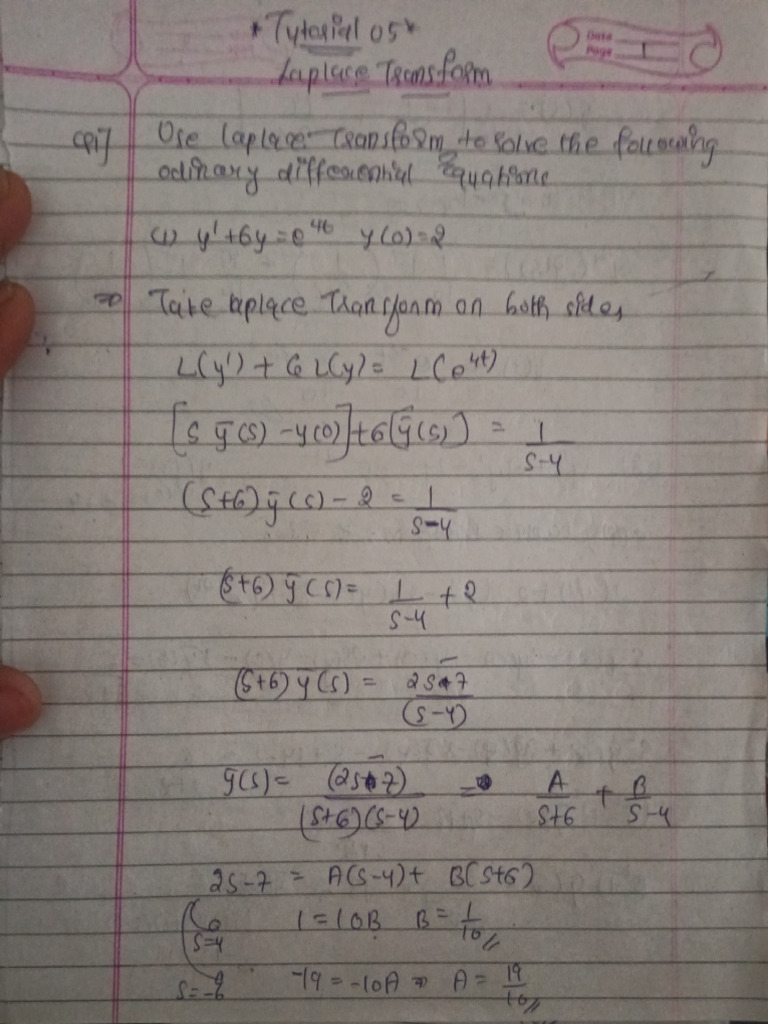 *Tutorial 05*
Date
Page 1
Laplace Transform
Q1] Use laplace transform to solve the following
odinary differential Equations
(1) y' + 6y = e^4t y(0) = 2
⇒ Take laplace Transform on both sides
L(y') + 6 L(y) = L(e^4t)
[s ȳ(s) - y(0)] + 6[ȳ(s)] = 1/(s-4)
(s+6) ȳ(s) - 2 = 1/(s-4)
(s+6) ȳ(s) = 1/(s-4) + 2
(s+6) ȳ(s) = (2s-7)/(s-4)
ȳ(s) = (2s-7)/((s+6)(s-4)) ⇒ A/(s+6) + B/(s-4)
2s-7 = A(s-4) + B(s+6)
s=4 1 = 10B B = 1/10 //
s=-6 -19 = -10A ⇒ A = 19/10 //